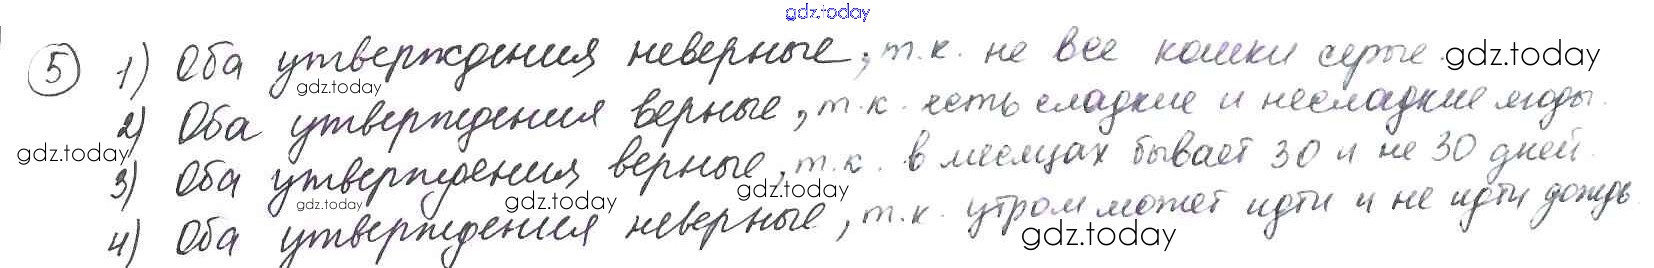 gdz.today
5 1) Оба утверждения неверные, т.к. не все кошки серые. gdz.today
gdz.today
2) Оба утверждения верные, т.к. есть сладкие и несладкие ягоды.
gdz.today
3) Оба утверждения верные, т.к. в месяцах бывает 30 и не 30 дней.
gdz.today gdz.today gdz.today
4) Оба утверждения неверные, т.к. утром может идти и не идти дождь
gdz.today